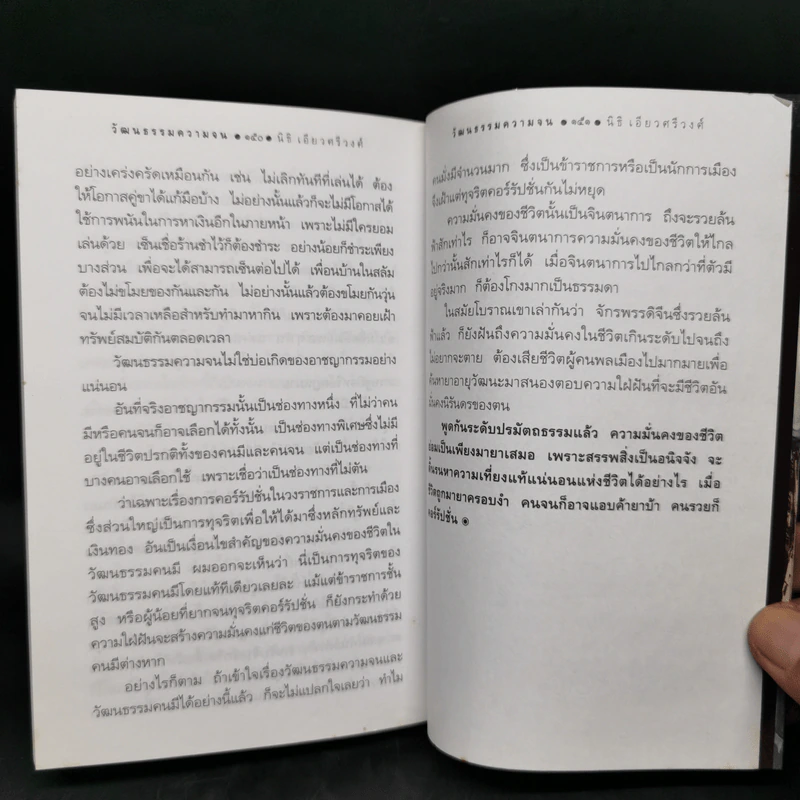 วัฒนธรรมความจน ● ๑๕๐ ● นิธิ เอียวศรีวงศ์
อย่างเคร่งครัดเหมือนกัน เช่น ไม่เลิกทันทีที่เล่นได้ ต้อง
ให้โอกาสคู่ขาได้แก้มือบ้าง ไม่อย่างนั้นแล้วก็จะไม่มีโอกาสได้
ใช้การพนันในการหาเงินอีกในภายหน้า เพราะไม่มีใครยอม
เล่นด้วย เซ็นเชื่อร้านชำไว้ก็ต้องชำระ อย่างน้อยก็ชำระเพียง
บางส่วน เพื่อจะได้สามารถเซ็นต่อไปได้ เพื่อนบ้านในสลัม
ต้องไม่ขโมยของกันและกัน ไม่อย่างนั้นแล้วต้องขโมยกันวุ่น
จนไม่มีเวลาเหลือสำหรับทำมาหากิน เพราะต้องมาคอยเฝ้า
ทรัพย์สมบัติกันตลอดเวลา
วัฒนธรรมความจนไม่ใช่บ่อเกิดของอาชญากรรมอย่าง
แน่นอน
อันที่จริงอาชญากรรมนั้นเป็นช่องทางหนึ่ง ที่ไม่ว่าคน
มีหรือคนจนก็อาจเลือกได้ทั้งนั้น เป็นช่องทางพิเศษซึ่งไม่มี
อยู่ในชีวิตปรกติทั้งของคนมีและคนจน แต่เป็นช่องทางที่
บางคนอาจเลือกใช้ เพราะเชื่อว่าเป็นช่องทางที่ไม่ตัน
ว่าเฉพาะเรื่องการคอร์รัปชั่นในวงราชการและการเมือง
ซึ่งส่วนใหญ่เป็นการทุจริตเพื่อให้ได้มาซึ่งหลักทรัพย์และ
เงินทอง อันเป็นเงื่อนไขสำคัญของความมั่นคงของชีวิตใน
วัฒนธรรมคนมี ผมออกจะเห็นว่า นี่เป็นการทุจริตของ
วัฒนธรรมคนมีโดยแท้ทีเดียวเลยละ แม้แต่ข้าราชการชั้น
สูง หรือผู้น้อยที่ยากจนทุจริตคอร์รัปชั่น ก็ยังกระทำด้วย
ความใฝ่ฝันจะสร้างความมั่นคงแก่ชีวิตของตนตามวัฒนธรรม
คนมีต่างหาก
อย่างไรก็ตาม ถ้าเข้าใจเรื่องวัฒนธรรมความจนและ
วัฒนธรรมคนมีได้อย่างนี้แล้ว ก็จะไม่แปลกใจเลยว่า ทำไม
วัฒนธรรมความจน ● ๑๕๑ ● นิธิ เอียวศรีวงศ์
คนมั่งมีจำนวนมาก ซึ่งเป็นข้าราชการหรือเป็นนักการเมือง
จึงเฝ้าแต่ทุจริตคอร์รัปชั่นกันไม่หยุด
ความมั่นคงของชีวิตนั้นเป็นจินตนาการ ถึงจะรวยล้น
ฟ้าสักเท่าไร ก็อาจจินตนาการความมั่นคงของชีวิตให้ไกล
ไปกว่านั้นสักเท่าไรก็ได้ เมื่อจินตนาการไปไกลกว่าที่ตัวมี
อยู่จริงมาก ก็ต้องโกงมากเป็นธรรมดา
ในสมัยโบราณเขาเล่ากันว่า จักรพรรดิจีนซึ่งรวยล้น
ฟ้าแล้ว ก็ยังฝันถึงความมั่นคงในชีวิตเกินระดับไปจนถึง
ไม่อยากจะตาย ต้องเสียชีวิตผู้คนพลเมืองไปมากมายเพื่อ
ค้นหายาอายุวัฒนะมาสนองตอบความใฝ่ฝันที่จะมีชีวิตอัน
มั่นคงนิรันดรของตน
พูดกันระดับปรมัตถธรรมแล้ว ความมั่นคงของชีวิต
ย่อมเป็นเพียงมายาเสมอ เพราะสรรพสิ่งเป็นอนิจจัง จะ
ดิ้นรนหาความเที่ยงแท้แน่นอนแห่งชีวิตได้อย่างไร เมื่อ
ชีวิตถูกมายาครอบงำ คนจนก็อาจแอบค้ายาบ้า คนรวยก็
คอร์รัปชั่น ◉